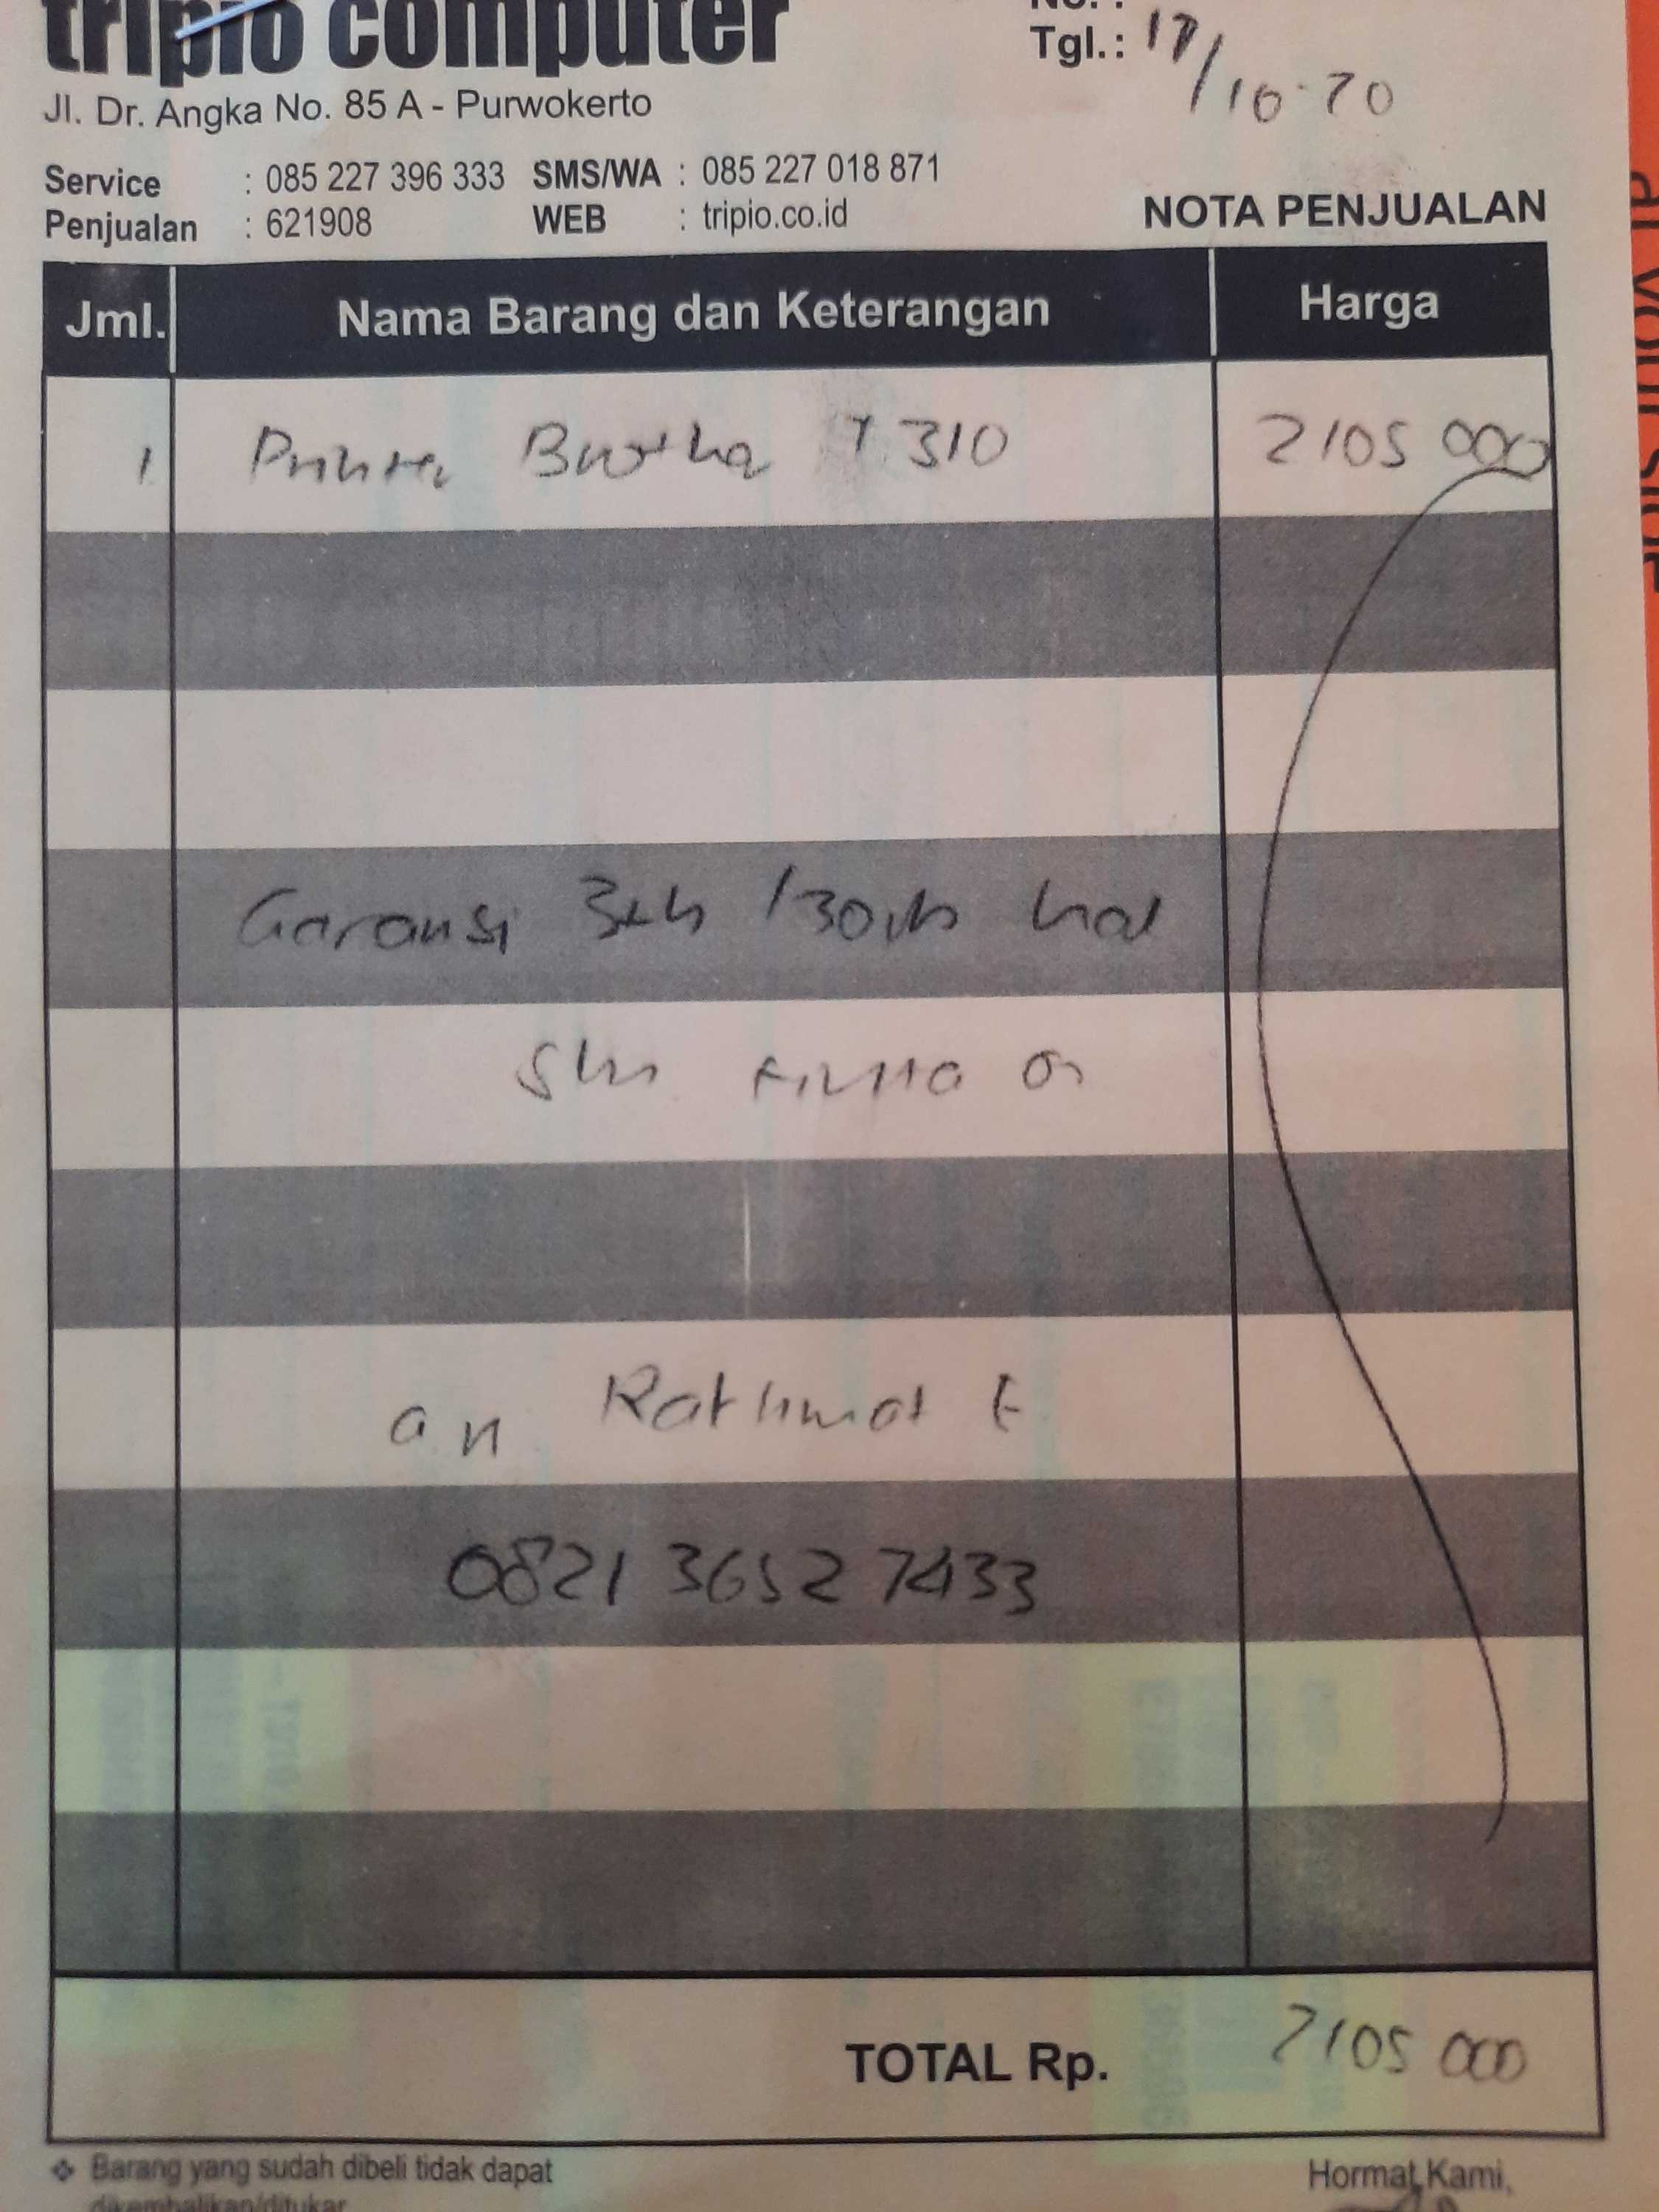 tripio computer
No. :
Tgl.: 17/10-20
Jl. Dr. Angka No. 85 A - Purwokerto
Service : 085 227 396 333 SMS/WA : 085 227 018 871
Penjualan : 621908 WEB : tripio.co.id
NOTA PENJUALAN
Jml. Nama Barang dan Keterangan Harga
1 Printer Brother T 310 2105 000
Garansi 3th /30rb hal
a n Rakhmat E
0821 3652 7433
TOTAL Rp. 2105 000
Barang yang sudah dibeli tidak dapat
dikembalikan/ditukar
Hormat Kami,